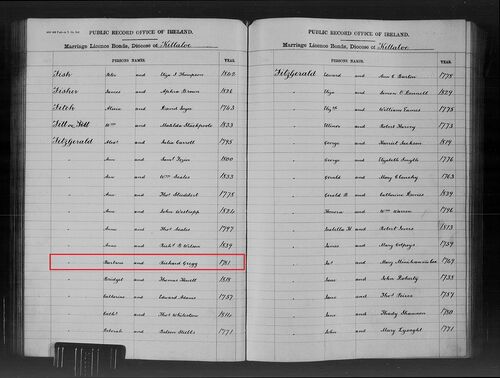 PUBLIC RECORD OFFICE OF IRELAND.
Marriage Licence Bonds, Diocese of Killaloe
PERSONS NAMES YEAR
Fish and Eliza J Thompson 1862
Fisher James and Aphra Brown 1826
Fitch Maria and David 1743
Fitt or Fitt Wm and Matilda Stackpoole 1833
FitzGerald Alexr and Julia Carroll 1795
" Ann and Saml 1800
" Ann and Wm Scales 1833
" Ann and Thos Studdert 1778
" Ann and John Westropp 1824
" Anne and Thos Scales 1797
" Anne and Richd B Wilson 1839
" Barbara and Richard Gregg 1781
" Bridget and Thomas 1818
" Catherine and Edward Adams 1757
" Cathe and Thos Whitestone 1811
" Deborah and 1771
PUBLIC RECORD OFFICE OF IRELAND.
Marriage Licence Bonds, Diocese of Killaloe
PERSONS NAMES YEAR
FitzGerald Edward and Ann C Burton 1778
" Eliza and James O'Connell 1829
" Elizth and William Eames 1775
" Ellinor and Robert Harvey 1773
" George and Harriet Jackson 1819
" George and Elizabeth Smyth 1776
" Gerald and Mary Clanchy 1763
" Gerald B and Catherine 1839
" Honora and Wm Warren 1796
" Isabella H and Robert 1813
" James and Mary Colpoys 1759
" and Mary 1769
" Jane and John 1735
" Jane and Thos Peirce 1757
" Jane and Thady Shannon 1780
" John and Mary Lysaght 1771